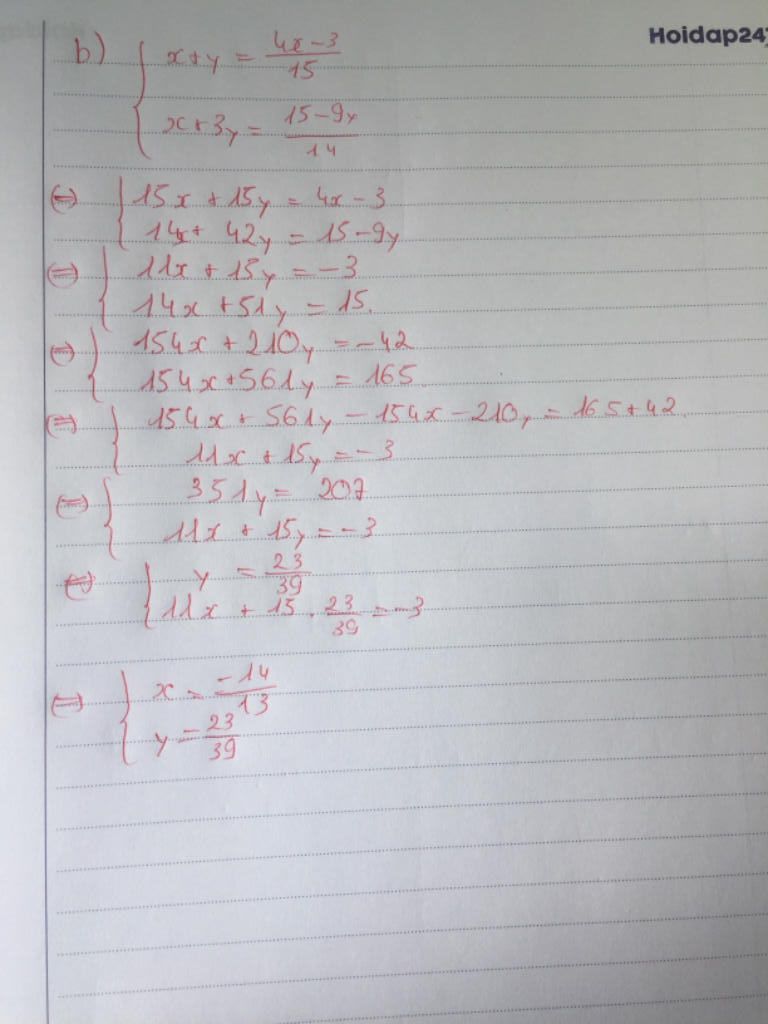 Hoidap247
b) { x + y = (4x - 3)/15
x + 3y = (15 - 9y)/14
(=) { 15x + 15y = 4x - 3
14x + 42y = 15 - 9y
(=) { 11x + 15y = -3
14x + 51y = 15.
(=) { 154x + 210y = -42
154x + 561y = 165
(=) { 154x + 561y - 154x - 210y = 165 + 42
11x + 15y = -3
(=) { 351y = 207
11x + 15y = -3
(=) { y = 23/39
11x + 15 . 23/39 = -3
(=) { x = -14/13
y = 23/39